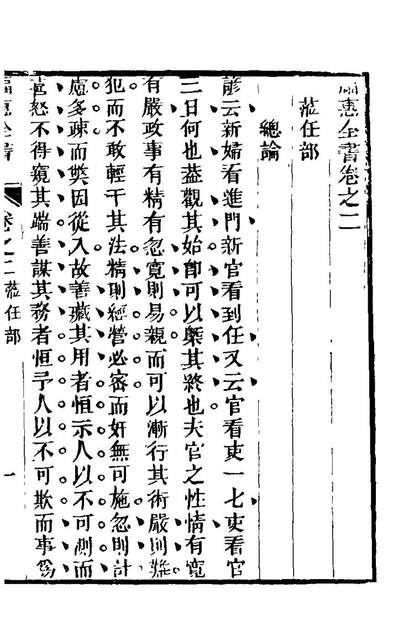 福惠全書卷之二
蒞任部
總論
諺云新婦看進門新官看到任又云官看吏一七吏看官
三日何也蓋觀其始卽可以槩其終也夫官之性情有寛
有嚴政事有精有忽寛則易親而可以漸行其術嚴則難
犯而不敢輕干其法精則經營必審而奸無可施忽則計
慮多疎而獘因從入故善藏其用者恒示人以不可測而
喜怒不得窺其端善謀其務者恒示人以不可欺而事爲
福惠全書
卷之二
蒞任部
一